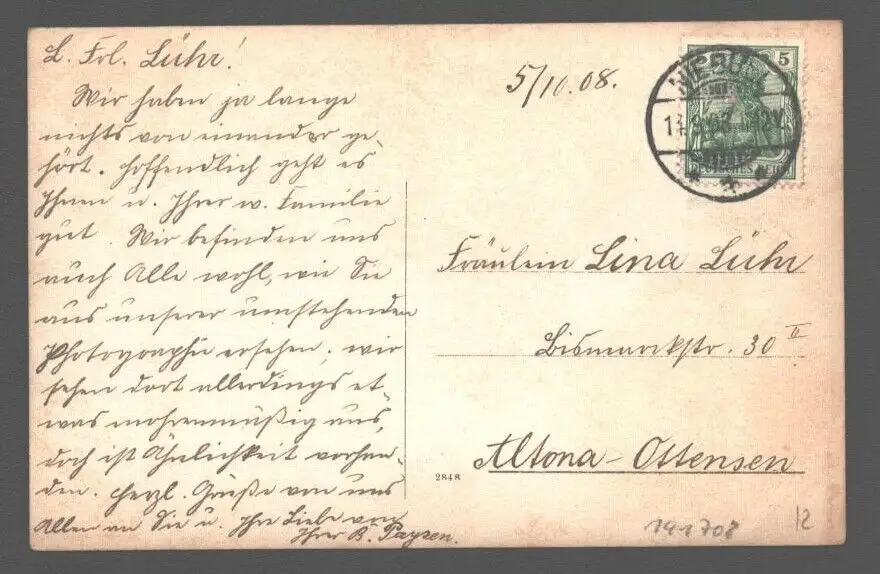 L. Frl. Lühr!
Wir haben ja lange
nichts von einander ge-
hört. Hoffendlich geht es
Ihnen u. Ihrer w. Familie
gut. Wir befinden uns
auch Alle wohl, wie Sie
aus unserer umstehenden
Photographie ersehen; wir
sehen dort allerdings et-
was mohrenmäßig aus,
doch ist Ähnlichkeit vorhan-
den. Herzl. Grüße von uns
Allen an Sie u. Ihre Liebe von
Ihrer B. Paysen.
5/10.08.
5
DEUTSCHES REICH
NIEBÜLL
Fräulein Lina Lühr
Bismarckstr. 30 II
Altona-Ottensen
2848
141708
12